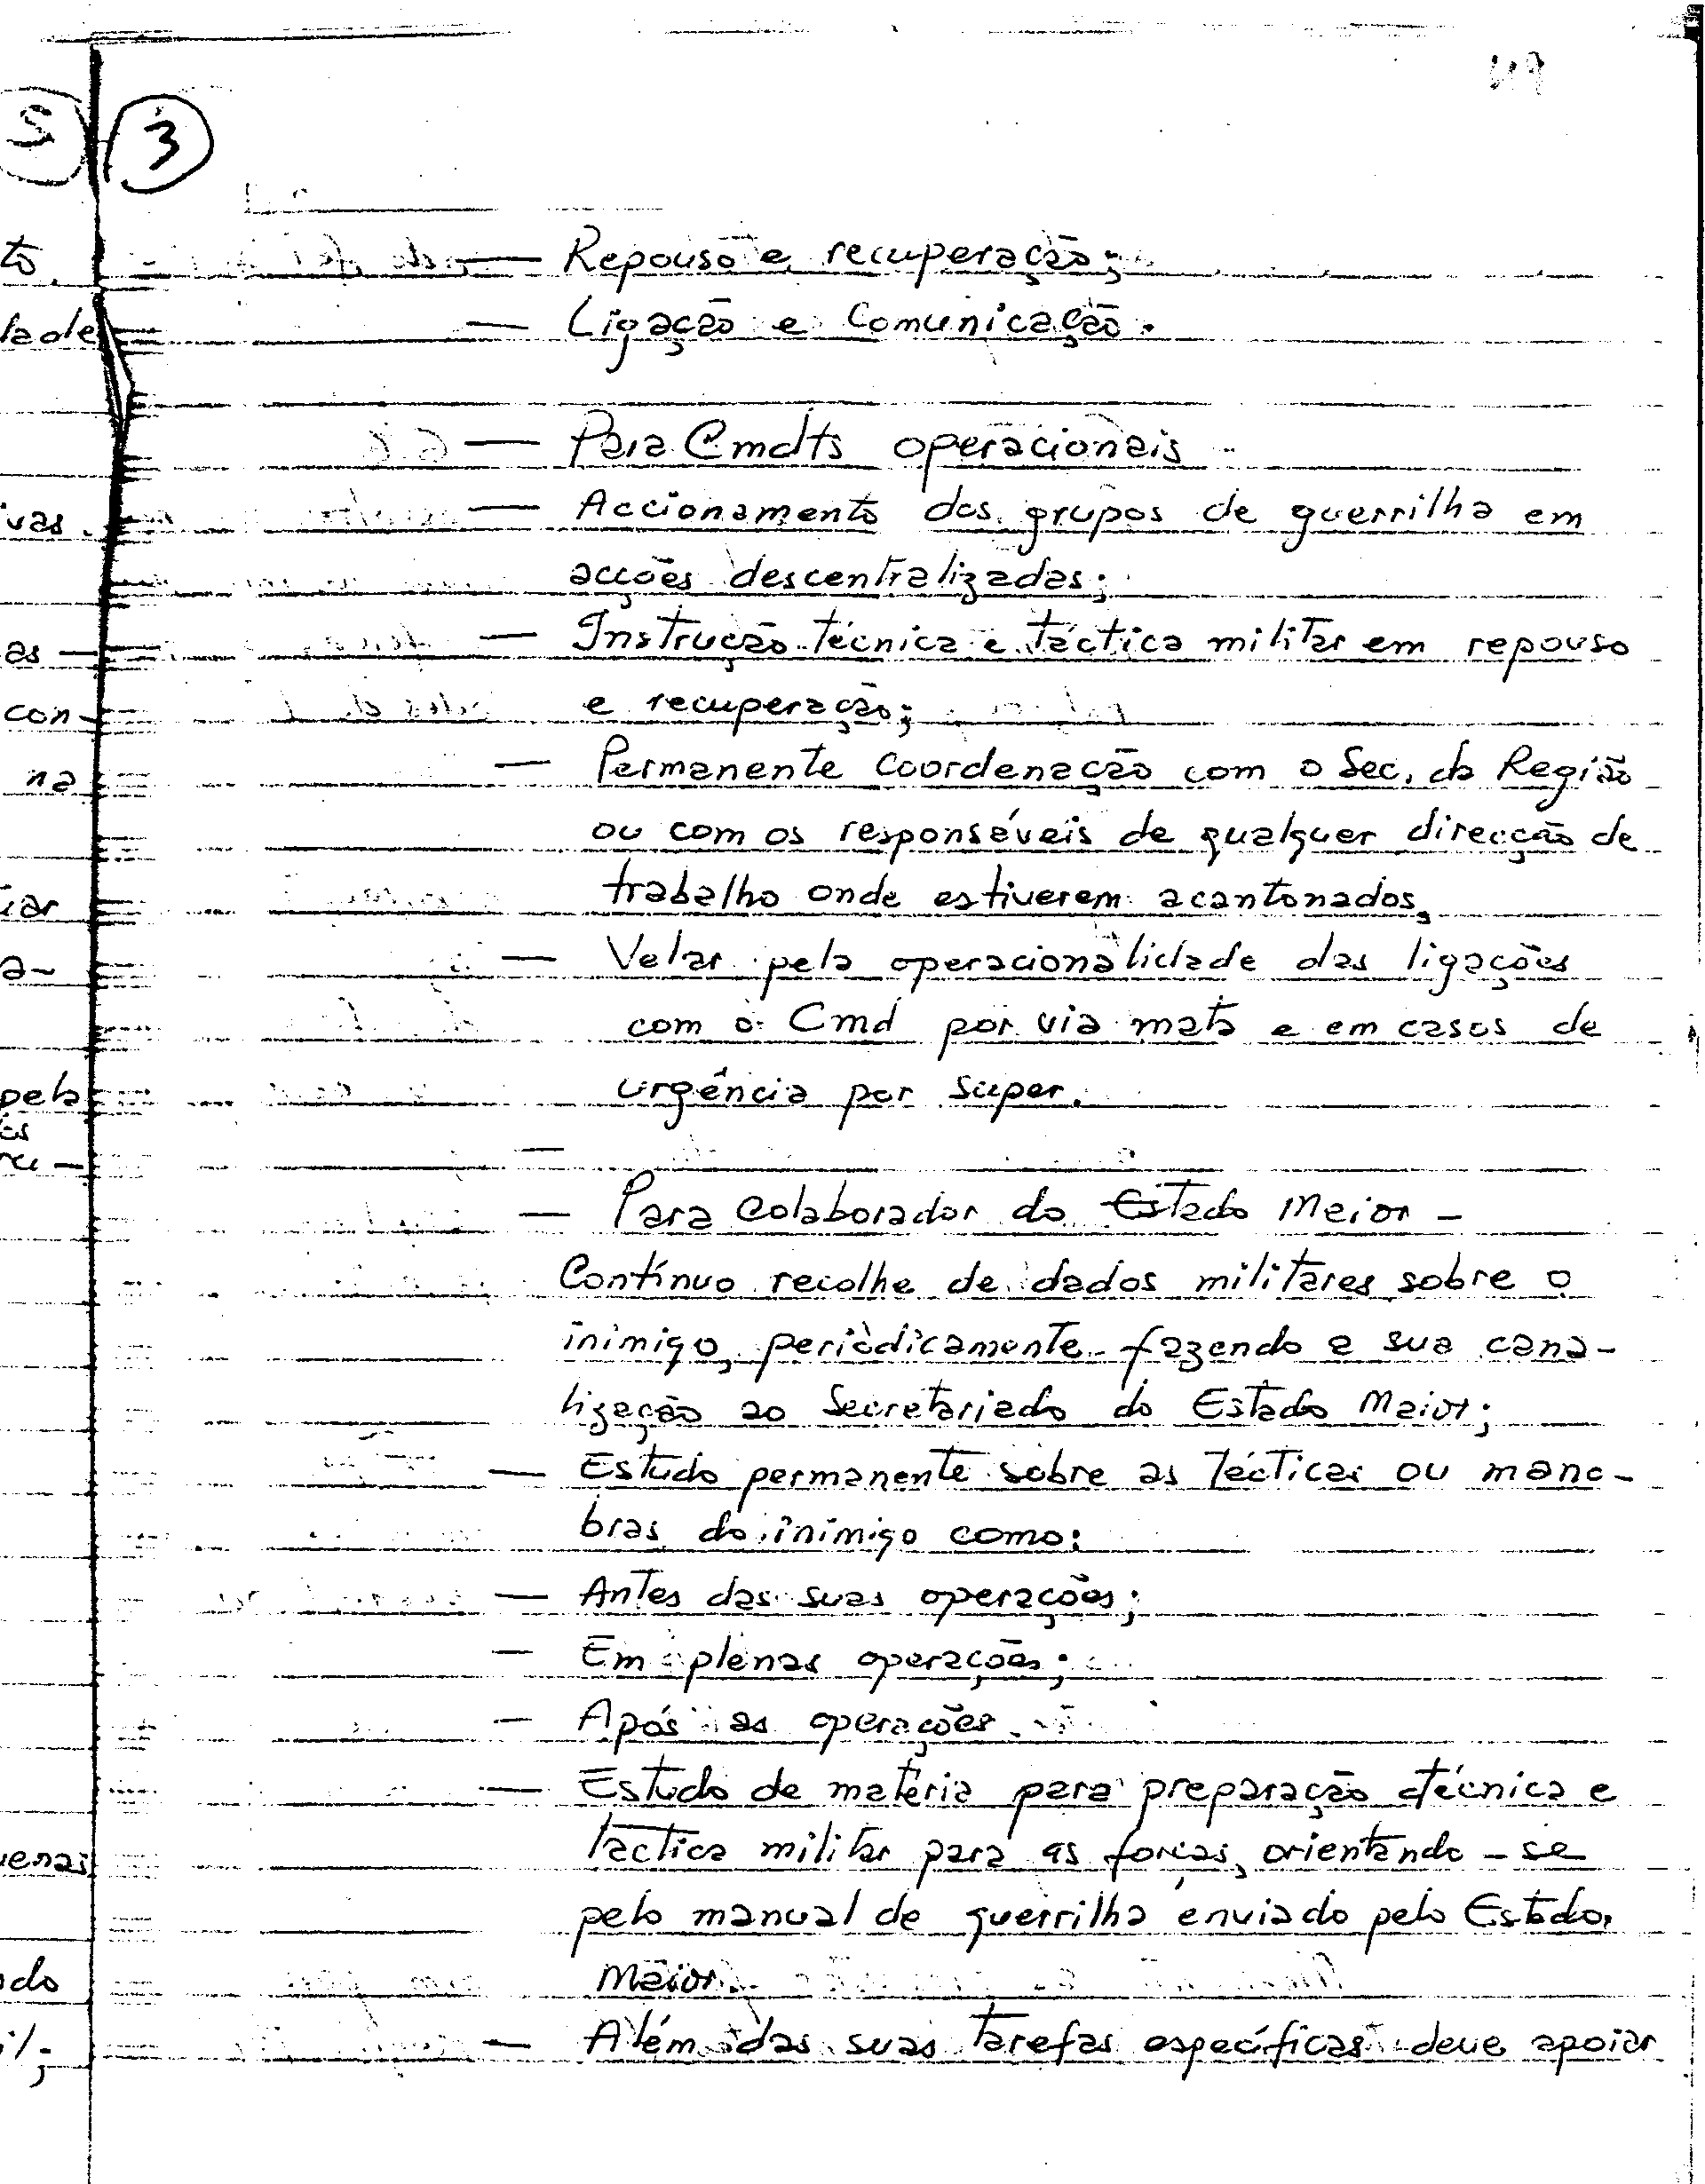 3
— Repouso e recuperação;
— Ligação e Comunicação.
— Para Cmdts operacionais
— Accionamento dos grupos de guerrilha em
acções descentralizadas;
— Instrução técnica e táctica militar em repouso
e recuperação;
— Permanente Coordenação com o Sec. da Região
ou com os responsáveis de qualquer direcção de
trabalho onde estiverem acantonados,
— Velar pela operacionalidade das ligações
com o Cmd por via mata e em casos de
urgência por super.
—
— Para Colaborador do Estado Maior –
Contínuo recolhe de dados militares sobre o
inimigo, periòdicamente fazendo a sua cana-
lização ao Secretariado do Estado Maior;
— Estudo permanente sobre as tácticas ou mano-
bras do inimigo como:
— Antes das suas operações;
— Em plenas operações;
— Após as operações.
— Estudo de matéria para preparação técnica e
táctica militar para as forças, orientando-se
pelo manual de guerrilha enviado pelo Estado
Maior.
— Além das suas tarefas específicas deve apoiar